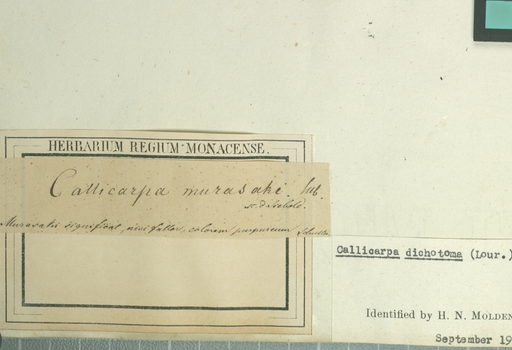 HERBARIUM REGIUM MONACENSE.
Callicarpa murasaki. Sieb.
Murasaki significat, nisi fallor, colorem purpureum
Callicarpa dichotoma (Lour.)
Identified by H. N. MOLDEN
September 19